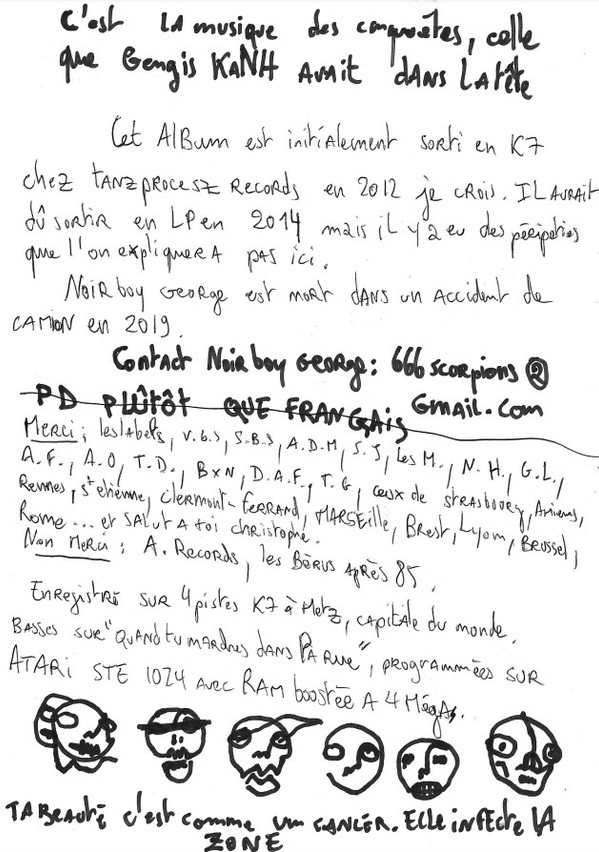 C'est LA musique des conquêtes, celle
que Gengis KaNH AVAIT DANS LA tête
Cet AlBum est initialement sorti en K7
chez TANZPROCESZ RECORDS en 2012 je CROIS. IL AURAIT
dû SORTIR en LP en 2014 mais il y a eu des péripéties
que l'on expliquerA PAS ici.
NOIR boy GEORGE est mort DANS un Accident de
CAMION en 2019.
Contact Noir boy GEORGE: 666 scorpions @
GMAIL.com
PD PLÛTÔT QUE FRANÇAIS
Merci: les labels, V.G.S, S.B.S, A.D.M, S.J, Les M., N.H., G.L.,
A.F., A.O, T.D., BxN, D.A.F., T.G, ceux de STRASBOURG, Amiens,
Rennes, St etienne, Clermont-FERRAND, MARSEille, Brest, Lyon, Brussel,
Rome... et SALUT A toi christophe.
Non Merci: A. Records, les BÉRUS APRÈS 85.
ENREGISTRÉ SUR 4 pistes K7 à Metz, capitale du monde.
BASSES SUR "QUAND tu MARCHES DANS LA RUE", PROGRAMMÉES SUR
ATARI STE 1024 avec RAM boostée A 4 MégAs.
TA BEAUTÉ c'est comme un CANCER. ElLE iNFECte LA
ZONE